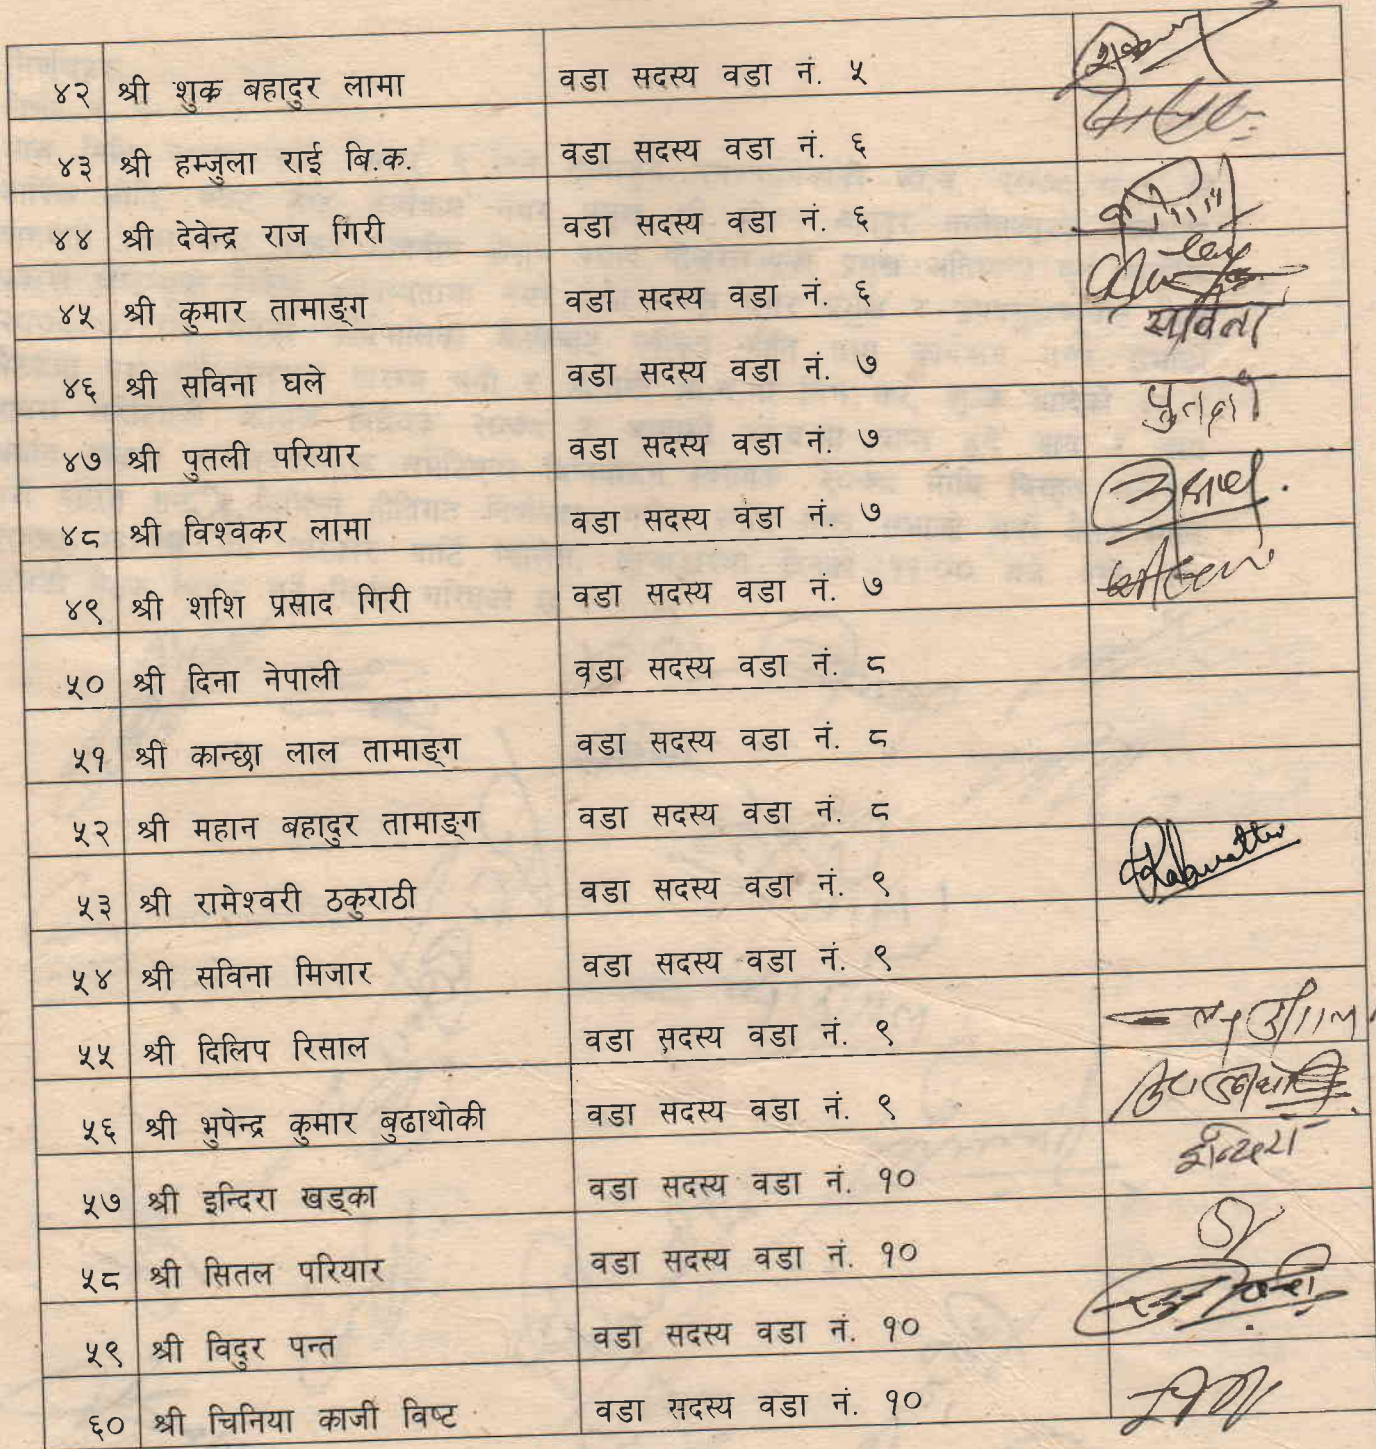 ४२ श्री शुक बहादुर लामा वडा सदस्य वडा नं. ५
४३ श्री हम्जुला राई बि.क. वडा सदस्य वडा नं. ६
४४ श्री देवेन्द्र राज गिरी वडा सदस्य वडा नं. ६
४५ श्री कुमार तामाङ्ग वडा सदस्य वडा नं. ६
४६ श्री सविना घले वडा सदस्य वडा नं. ७ सविना
४७ श्री पुतली परियार वडा सदस्य वडा नं. ७ पुतली
४८ श्री विश्वकर लामा वडा सदस्य वडा नं. ७
४९ श्री शशि प्रसाद गिरी वडा सदस्य वडा नं. ७
५० श्री दिना नेपाली वडा सदस्य वडा नं. ८
५१ श्री कान्छा लाल तामाङ्ग वडा सदस्य वडा नं. ८
५२ श्री महान बहादुर तामाङ्ग वडा सदस्य वडा नं. ८
५३ श्री रामेश्वरी ठकुराठी वडा सदस्य वडा नं. ९
५४ श्री सविना मिजार वडा सदस्य वडा नं. ९
५५ श्री दिलिप रिसाल वडा सदस्य वडा नं. ९
५६ श्री भुपेन्द्र कुमार बुढाथोकी वडा सदस्य वडा नं. ९
५७ श्री इन्दिरा खड्का वडा सदस्य वडा नं. १० इन्दिरा
५८ श्री सितल परियार वडा सदस्य वडा नं. १०
५९ श्री विदुर पन्त वडा सदस्य वडा नं. १०
६० श्री चिनिया काजी विष्ट वडा सदस्य वडा नं. १०